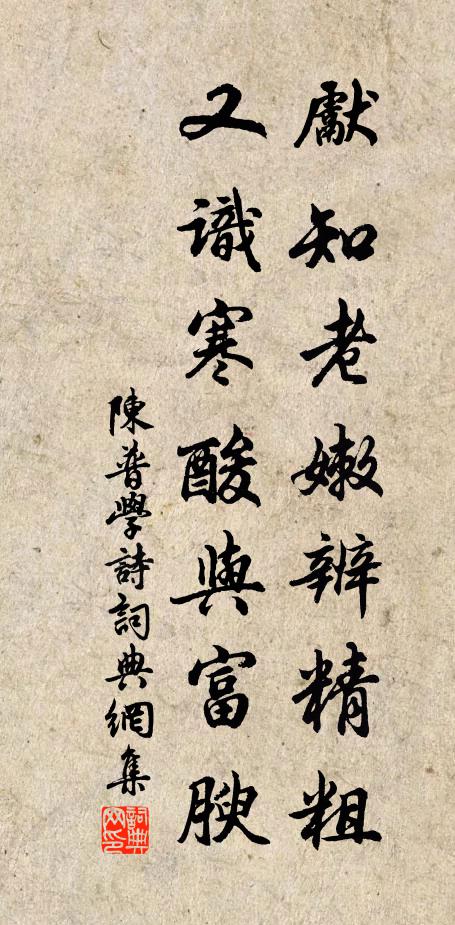 獻知老嫩辨精粗
又識寒酸與富腴
陳普學詩詞典網集
詞典網印